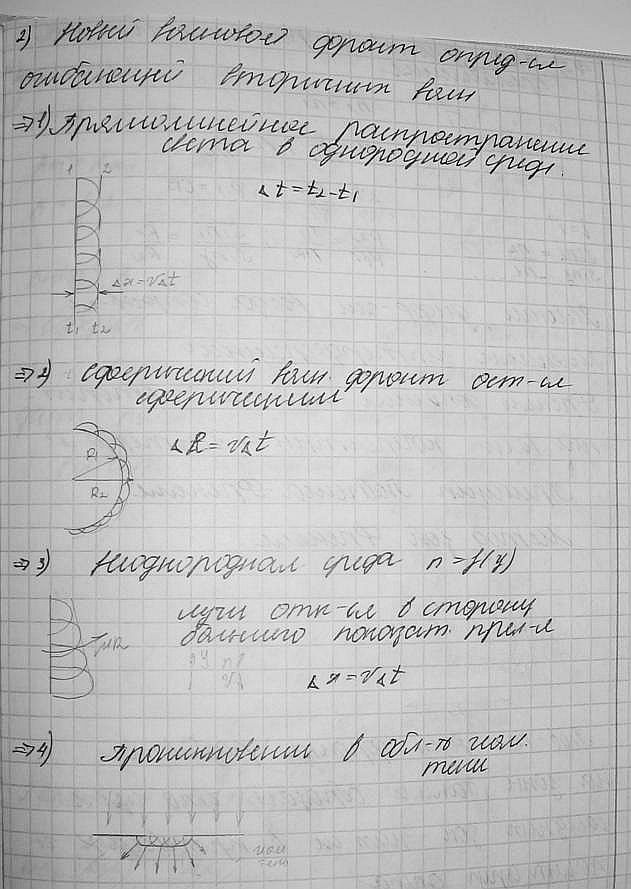 2) Новый волновой фронт опред-ся
огибающей вторичных волн
⇒1) Прямолинейное распространение
света в однородной среде.
1 2
Δt = t₂ - t₁
Δx = vΔt
t₁ t₂
⇒2) сферический волн. фронт ост-ся
сферическим
R₁
ΔR = vΔt
R₂
⇒3) Неоднородная среда n = f(y)
лучи отк-ся в сторону
большего показат. прел-я
луч
Δx = vΔt
⇒4) проникновение в обл-ть геом.
тени
геом
тень